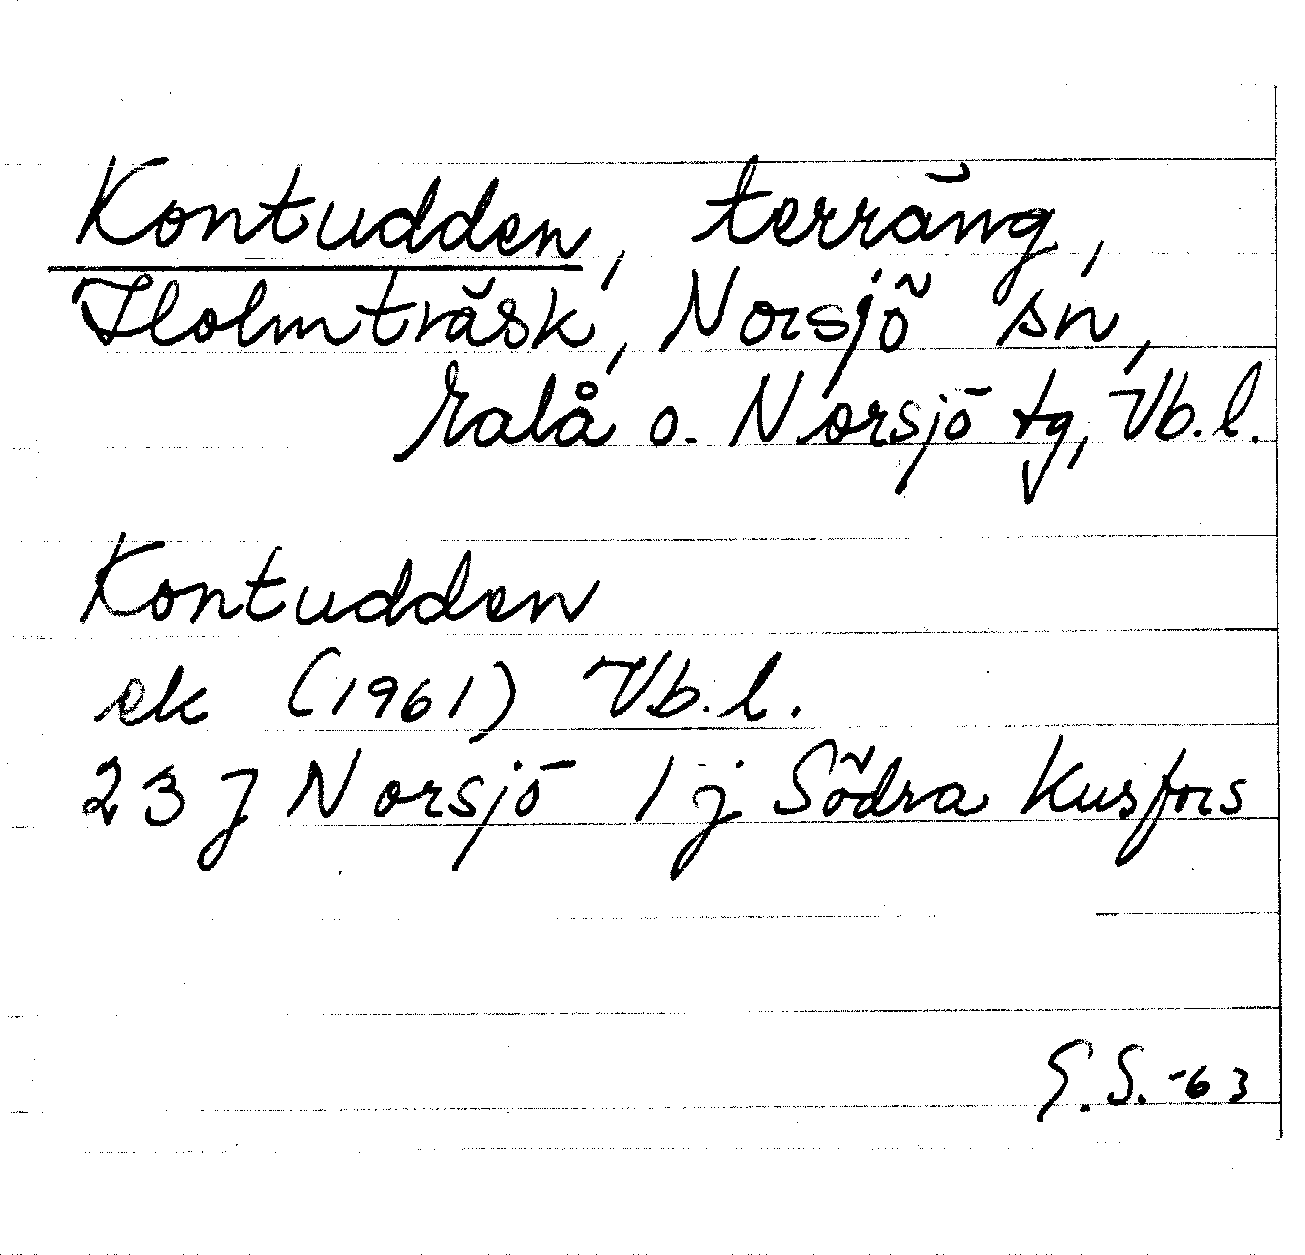 Kontudden, terräng,
Holmträsk, Norsjö sn,
Malå o. Norsjö tg, Vb.l.
Kontudden
ek (1961) Vb.l.
23 J Norsjö 1 j Södra Kusfors
G.S.-63